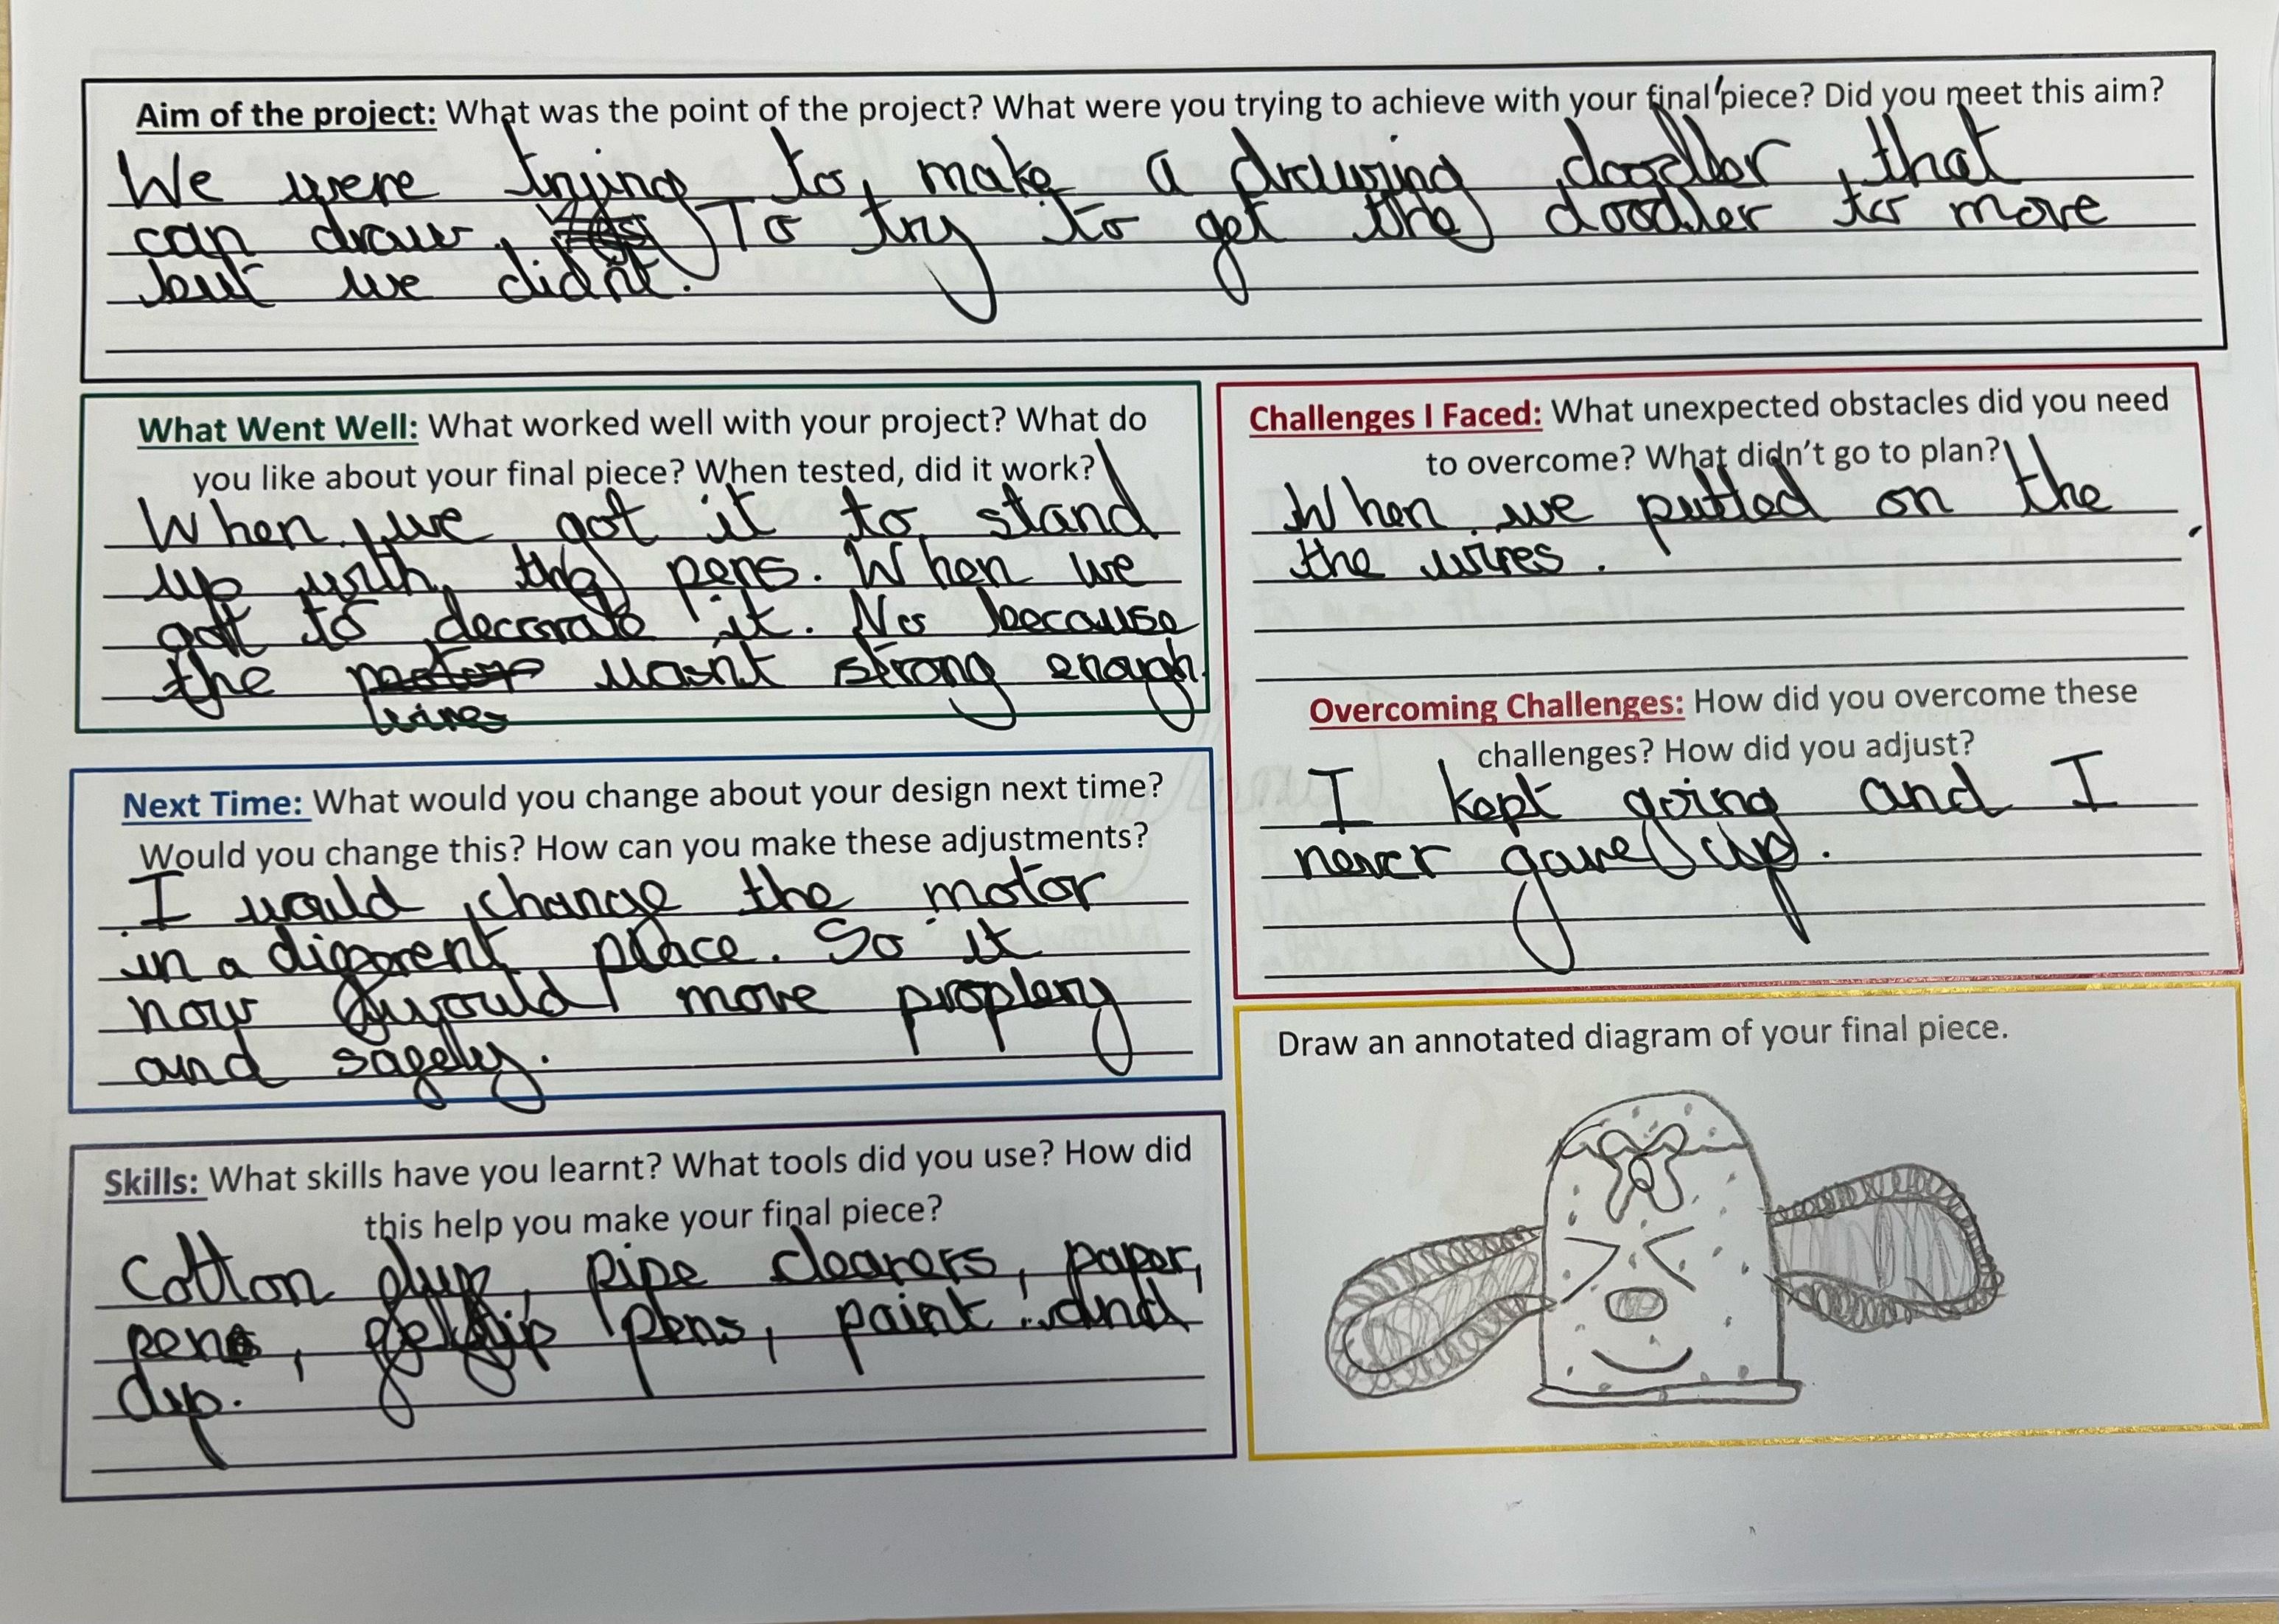 Aim of the project: What was the point of the project? What were you trying to achieve with your final piece? Did you meet this aim?
We were trying to make a drawing doodler that
can draw. To try to get the doodler to move
but we didn't.
What Went Well: What worked well with your project? What do
you like about your final piece? When tested, did it work?
When we got it to stand
up with the pens. When we
got to decorate it. No because
the motor wasn't strong enough.
wires
Next Time: What would you change about your design next time?
Would you change this? How can you make these adjustments?
I would change the motor
in a different place. So it
now would move proplery
and safely.
Skills: What skills have you learnt? What tools did you use? How did
this help you make your final piece?
Cotton pipe cleaners, paper,
pens, pens, paint and
cup.
Challenges I Faced: What unexpected obstacles did you need
to overcome? What didn't go to plan?
When we putted on the
the wires.
Overcoming Challenges: How did you overcome these
challenges? How did you adjust?
I kept going and I
never gave up.
Draw an annotated diagram of your final piece.